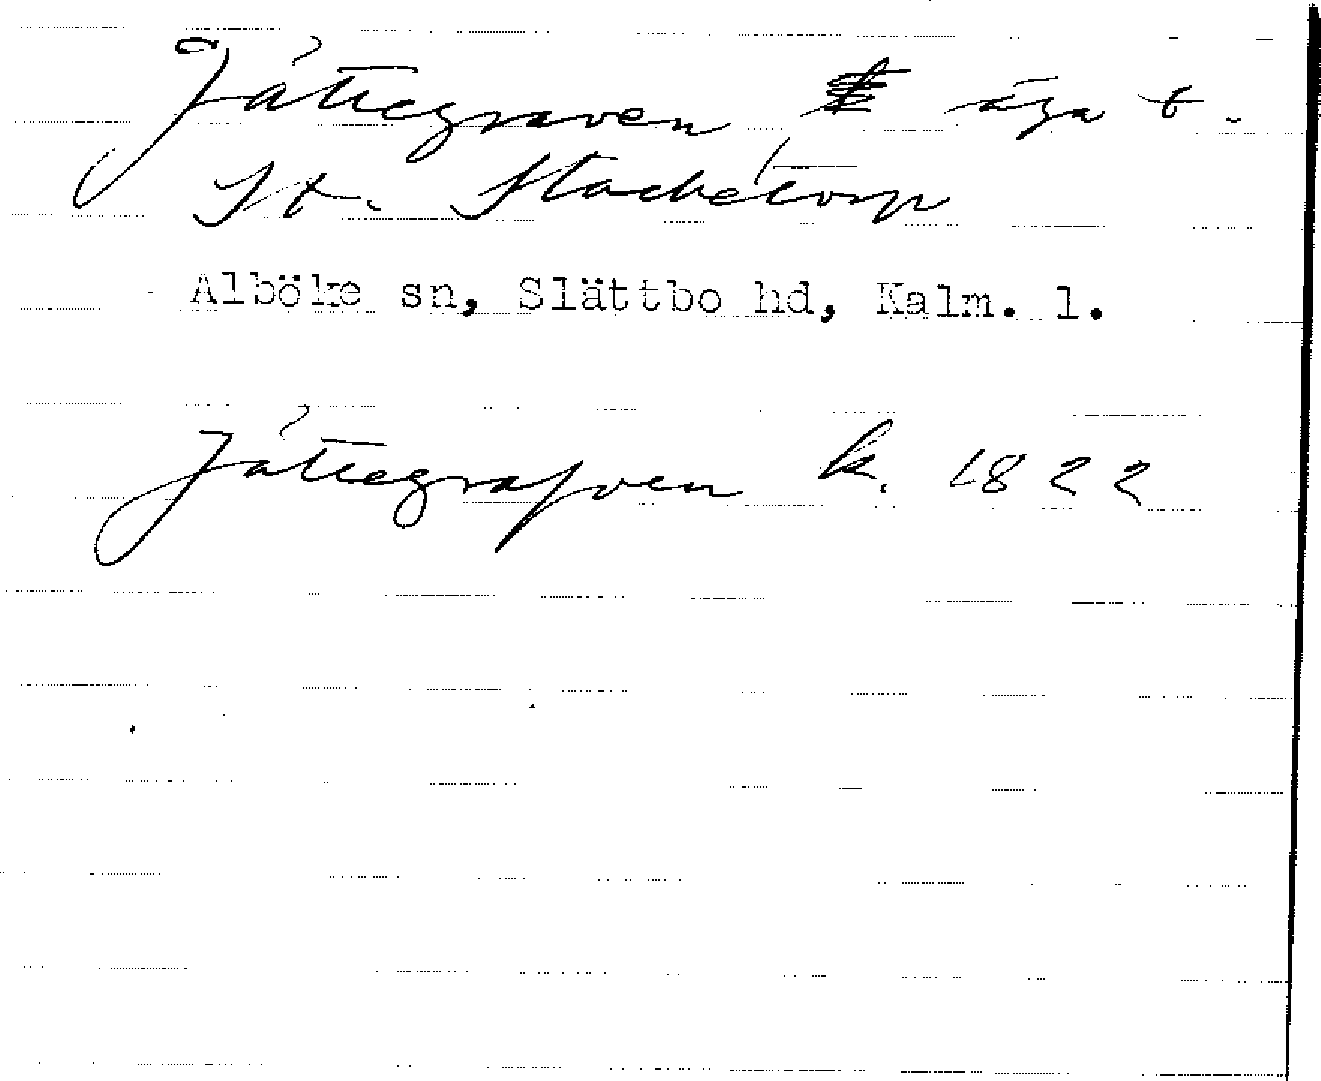 Jättegraven äga t.
St. Stacketorp
Alböke sn, Slättbo hd, Kalm. l.
Jättegrafven k. 1822